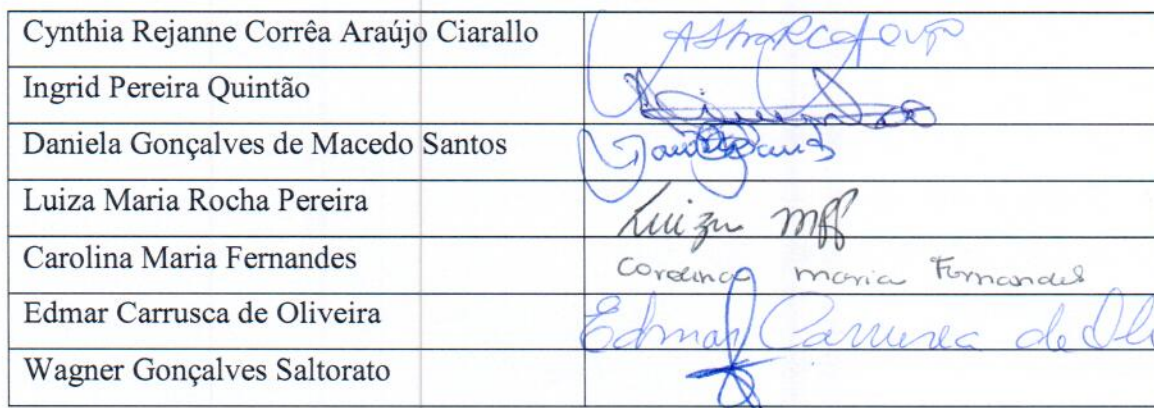 Cynthia Rejanne Corrêa Araújo Ciarallo
Ingrid Pereira Quintão
Daniela Gonçalves de Macedo Santos
Luiza Maria Rocha Pereira Luiza
Carolina Maria Fernandes Carolina maria Fernandes
Edmar Carrusca de Oliveira Edmar Carrusca de Oli
Wagner Gonçalves Saltorato